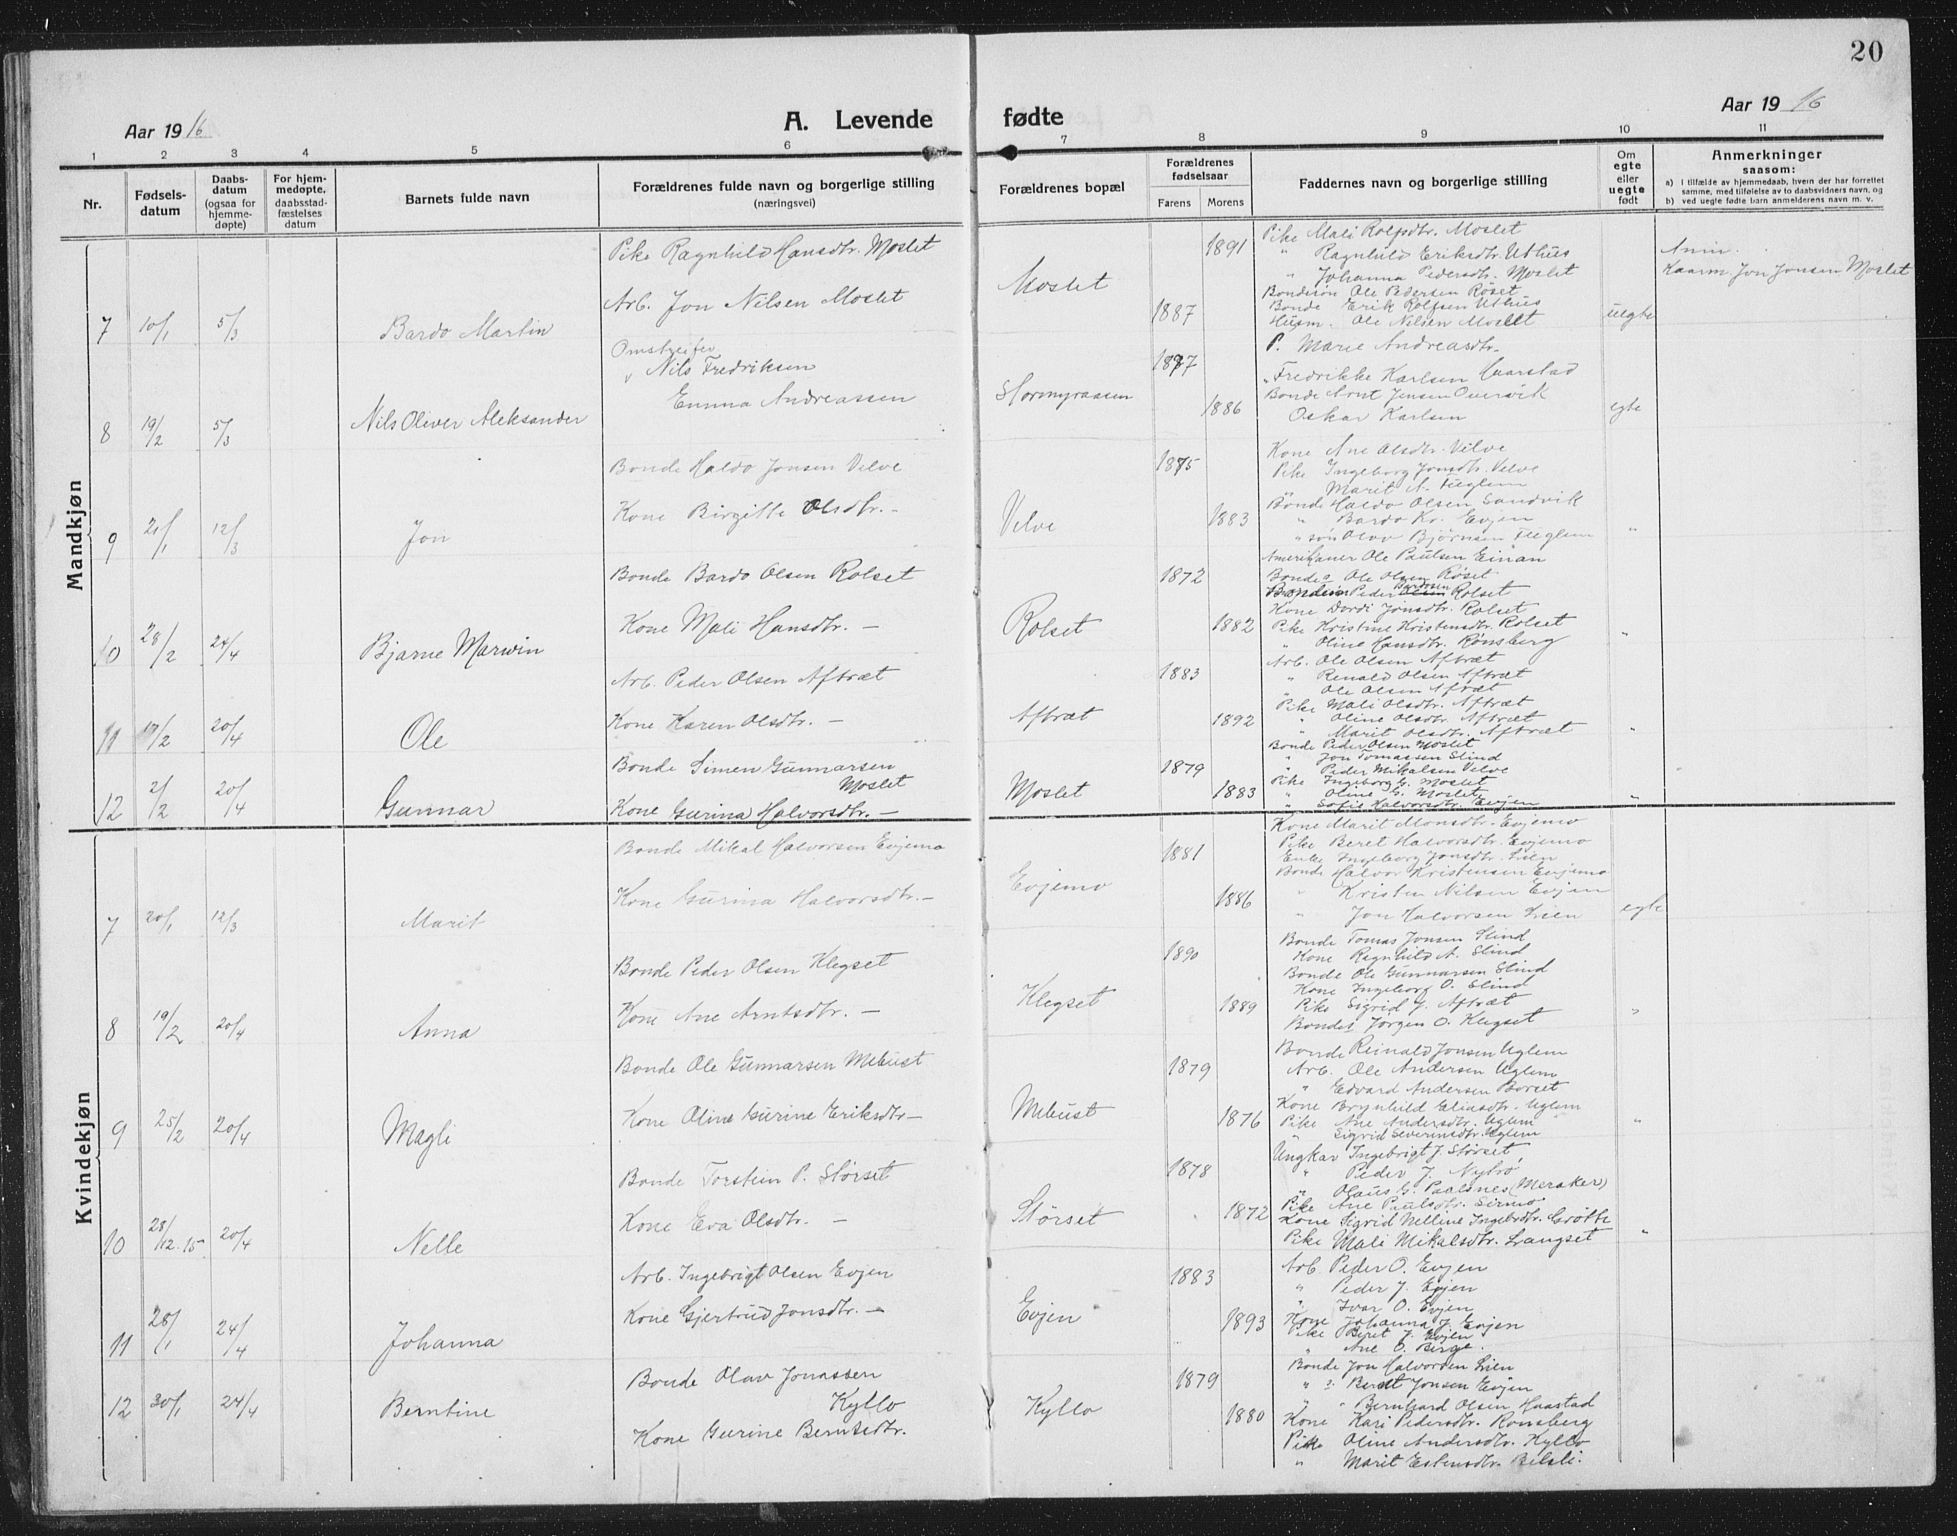 20
Aar 1916
A. Levende
fødte
Aar 1916
1 2 3 4 5 6 7 8 9 10 11
Nr.
Fødsels-
datum
Daabs-
datum
(ogsaa for
hjemme-
døpte)
For hjem-
medøpte,
daabsstad-
fæstelses
datum
Barnets fulde navn
Forældrenes fulde navn og borgerlige stilling
(næringsvei)
Forældrenes bopæl
Forældrenes
fødselsaar
Farens Morens
Faddernes navn og borgerlige stilling
Om
egte
eller
uegte
født
Anmerkninger
saasom:
a) I tilfælde av hjemmedaab, hvem der har forrettet
samme, med tilføielse av to daabsvidners navn, og
b) ved uegte fødte barn anmelderens navn m. v.
Mandkjøn
7 10/1 5/3 Bardo Martin
Pike Ragnhild Hansdtr. Moslet
Arb. Jon Nilsen Moslet
Moslet
1891
1887
Pike Mali Rolfsdtr. Moslet
" Ragnhild Eriksdtr. Uthus
" Johanna Pedersdtr. Moslet
Bondesøn Ole Pedersen Røset
Bonde Erik Rolfsen Uthus
Husm. Ole Nilsen Moslet
uegte
Anm.
Kaarm. Jon Jonsen Moslet
8 19/2 5/3 Nils Oliver Aleksander
Omstreifer
" Nils Fredriksen
Emma Andreassen
Stormyraasen
1877
1886
P. Marie Andreasdtr.
" Fredrikke Karlsen Haarstad
Bonde Arnt Jensen Overvik
Oskar Karlsen
egte
9 20/1 12/3 Jon
Bonde Haldo Jonsen Velve
Kone Birgitte Olsdtr. —
Velve
1875
1883
Kone Ane Olsdtr. Velve
Pike Ingeborg Jonsdtr. Velve
" Marit A. Uglem
Bonde Haldo Olsen Sandvik
" Bardo Kr. Evjen
" søn Olav Bjørnsen Uglem
"
10 28/2 24/4 Bjarne Marwin
Bonde Bardo Olsen Rolset
Kone Mali Hansdtr. —
Rolset
1872
1882
Amerikaner Ole Paulsen Einan
Bondes Ole Olsen Røset
Bondesøn Peder Bardosen Rolset
Kone Dordi Jonsdtr. Rolset
Pike Kristine Kristensdtr. Rolset
" Oline Hansdtr. Rønsberg
"
11 17/2 20/4 Ole
Arb. Peder Olsen Aftræt
Kone Karen Olsdtr. —
Aftræt
1883
1892
Arb. Ole Olsen Aftræt
" Renald Olsen Aftræt
" Ole Olsen Aftræt
Pike Mali Olsdtr. Aftræt
" Oline Olsdtr. Aftræt
" Marit Olsdtr. Aftræt
"
12 2/2 20/4 Gunnar
Bonde Simen Gunnarsen
Moslet
Kone Gurina Halvorsdtr. —
Moslet
1879
1883
Bonde Peder Olsen Moslet
" Jon Tomassen Slind
" Peder Mikalsen Velve
Pike Ingeborg G. Moslet
" Oline G. Moslet
" Sofie Halvorsdtr. Evjen
"
Kvindekjøn
7 20/1 12/3 Marit
Bonde Mikal Halvorsen Evjemo
Kone Gurina Halvorsdtr. —
Evjemo
1881
1886
Kone Marit Monsdtr. Evjemo
Pike Beret Halvorsdtr. Evjemo
Enke Ingeborg Jonsdtr. Lien
Bonde Halvor Kristensen Evjemo
" Kristen Nilsen Evjen
" Jon Halvorsen Lien
egte
8 19/2 20/4 Anna
Bonde Peder Olsen Klegset
Kone Ane Arntsdtr. —
Klegset
1890
1889
Bonde Tomas Jonsen Slind
Kone Ragnhild A. Slind
Bonde Ole Gunnarsen Slind
Kone Ingeborg O. Slind
Pike Sigrid J. Aftræt
Bondes Jørgen O. Klegset
"
9 25/2 20/4 Magli
Bonde Ole Gunnarsen Mebust
Kone Oline Gurine Eriksdtr —
Mebust
1879
1876
Bonde Reinald Jonsen Uglem
Arb. Ole Andersen Uglem
" Edvard Andersen Borset
Kone Brynhild Eliasdtr. Uglem
Pike Ane Andersdtr. Uglem
" Sigrid Severinsdtr. Uglem
"
10 28/12-15 20/4 Nelle
Bonde Torstein P. Størset
Kone Eva Olsdtr. —
Størset
1878
1872
Ungkar Ingebrigt J. Størset
" Peder J. Nybrø
" Olaus G. Paalsnes (Meraker)
Pike Ane Paulsdtr. Sirmo
Kone Sigrid Nelline Ingebrdtr. Grøtte
Pike Mali Mikalsdtr. Langset
"
11 28/1 24/4 Johanna
Arb. Ingebrigt Olsen Evjen
Kone Gjertrud Jonsdtr. —
Evjen
1883
1893
Arb. Peder O. Evjen
" Peder J. Evjen
" Ivar O. Evjen
Kone Johanna J. Evjen
Pike Beret J. Evjen
" Ane O. Berge.
12 30/1 24/4 Berntine
Bonde Olav Jonassen
Kyllo
Kone Gurine Berntsdtr.
Kyllo
1879
1880
Bonde Jon Halvorsen Lien
" s. Berdt Jonsen Evjen
" " Bernhard Olsen Haastad
Kone Kari Pedersdtr. Rønsberg
Pike Oline Andersdtr. Kyllo
" Marit Estensdtr. Bilsli.